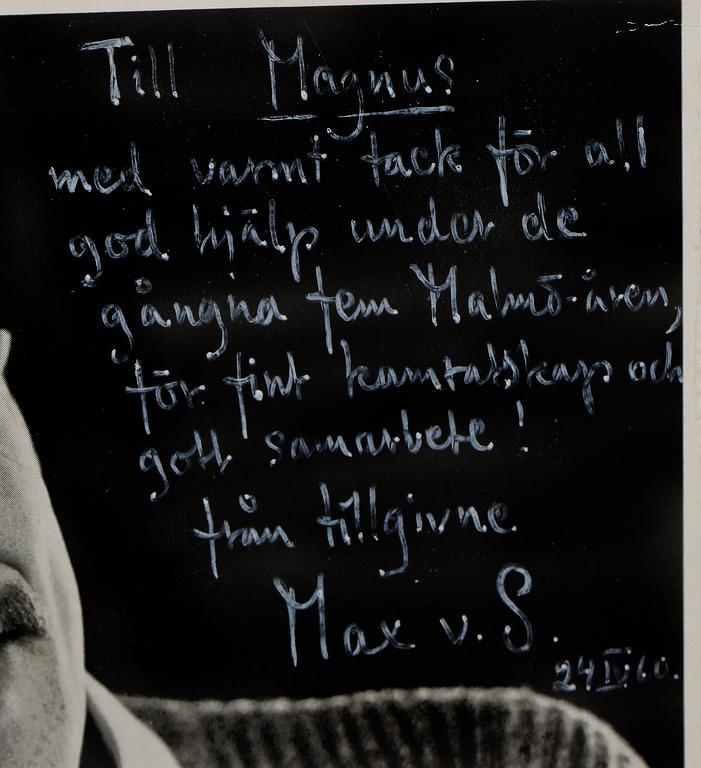 Till Magnus
med varmt tack för all
god hjälp under de
gångna fem Malmö-åren,
för fint kamratskap och
gott samarbete!
från tillgivne
Max v. S.
24 IV 60.